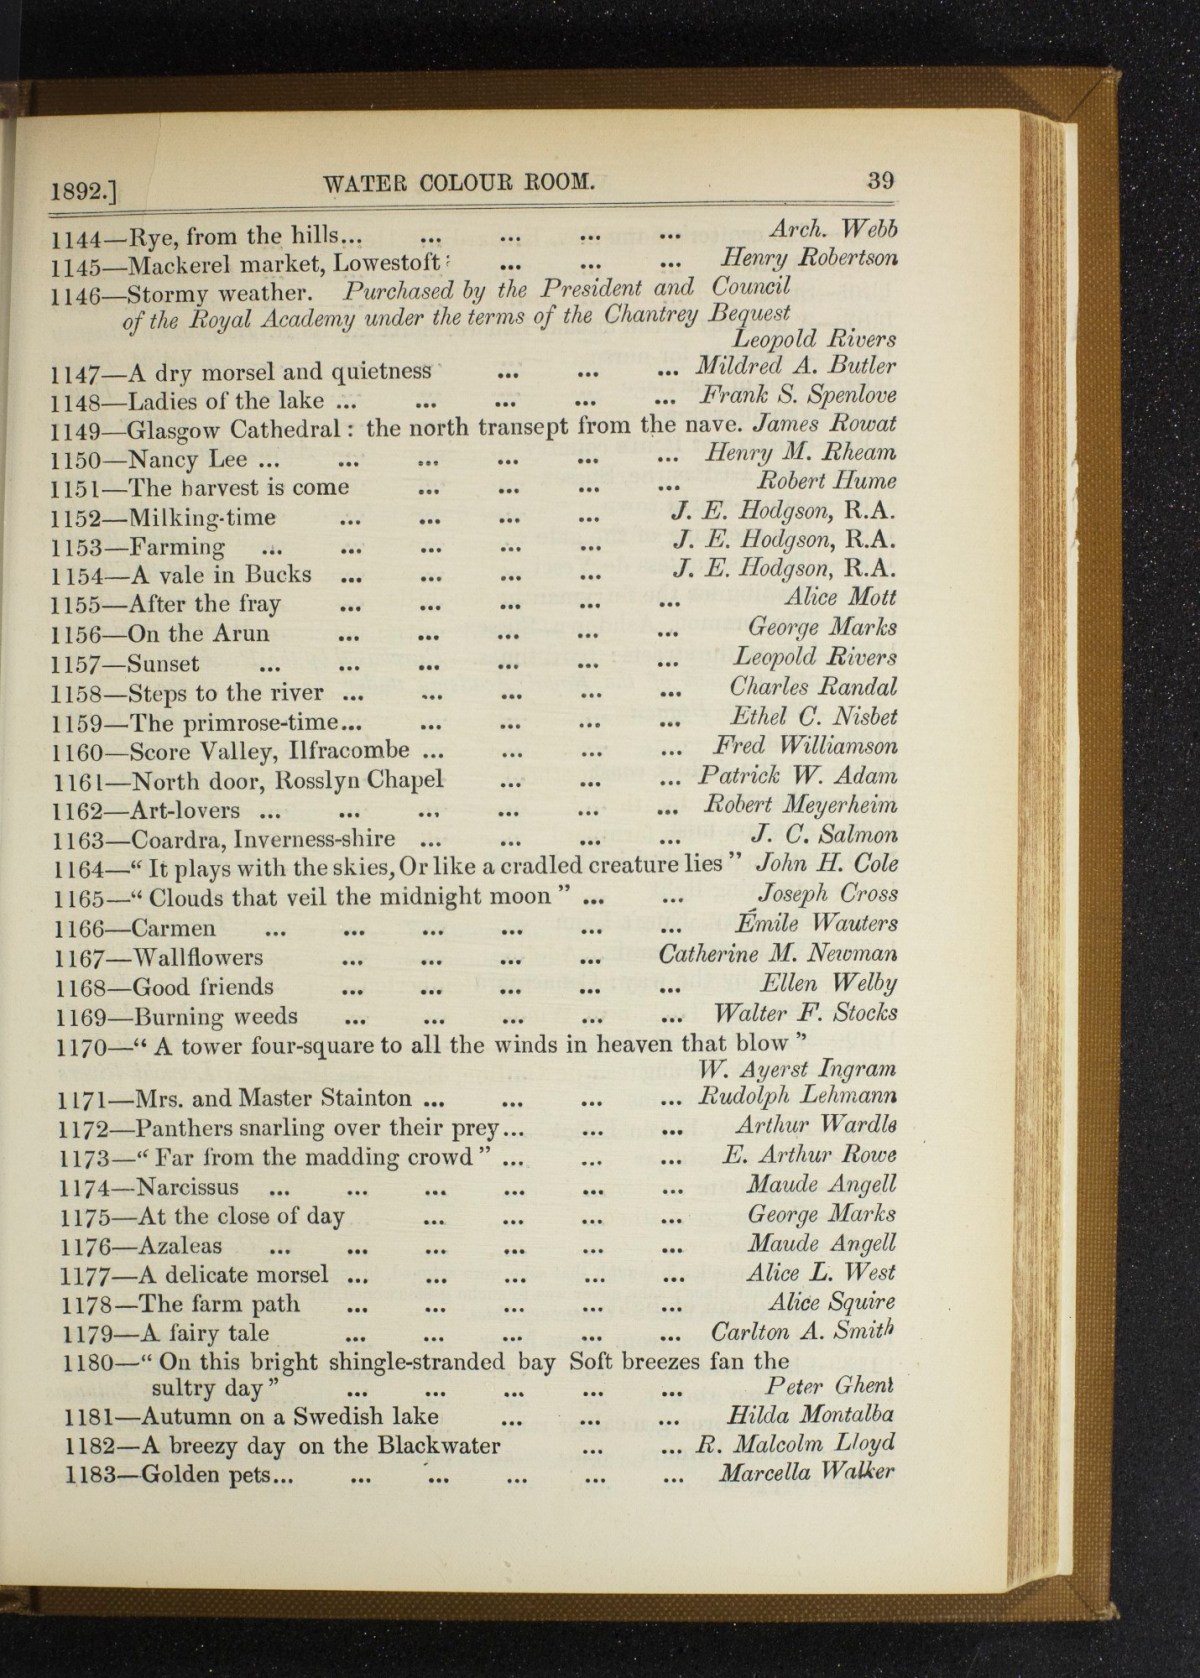 1892.] WATER COLOUR ROOM. 39
1144—Rye, from the hills... ... ... ... ... Arch. Webb
1145—Mackerel market, Lowestoft ... ... ... Henry Robertson
1146—Stormy weather. Purchased by the President and Council
of the Royal Academy under the terms of the Chantrey Bequest
Leopold Rivers
1147—A dry morsel and quietness ... ... ... Mildred A. Butler
1148—Ladies of the lake ... ... ... ... ... Frank S. Spenlove
1149—Glasgow Cathedral: the north transept from the nave. James Rowat
1150—Nancy Lee ... ... ... ... ... ... Henry M. Rheam
1151—The harvest is come ... ... ... ... Robert Hume
1152—Milking-time ... ... ... ... J. E. Hodgson, R.A.
1153—Farming ... ... ... ... ... J. E. Hodgson, R.A.
1154—A vale in Bucks ... ... ... ... J. E. Hodgson, R.A.
1155—After the fray ... ... ... ... ... Alice Mott
1156—On the Arun ... ... ... ... ... George Marks
1157—Sunset ... ... ... ... ... ... Leopold Rivers
1158—Steps to the river ... ... ... ... ... Charles Randal
1159—The primrose-time... ... ... ... ... Ethel C. Nisbet
1160—Score Valley, Ilfracombe ... ... ... ... Fred Williamson
1161—North door, Rosslyn Chapel ... ... ... Patrick W. Adam
1162—Art-lovers ... ... ... ... ... ... Robert Meyerheim
1163—Coardra, Inverness-shire ... ... ... ... J. C. Salmon
1164—“ It plays with the skies, Or like a cradled creature lies ” John H. Cole
1165—“ Clouds that veil the midnight moon ” ... ... Joseph Cross
1166—Carmen ... ... ... ... ... ... Émile Wauters
1167—Wallflowers ... ... ... ... Catherine M. Newman
1168—Good friends ... ... ... ... ... Ellen Welby
1169—Burning weeds ... ... ... ... ... Walter F. Stocks
1170—“ A tower four-square to all the winds in heaven that blow ”
W. Ayerst Ingram
1171—Mrs. and Master Stainton ... ... ... ... Rudolph Lehmann
1172—Panthers snarling over their prey... ... ... Arthur Wardle
1173—“ Far from the madding crowd ” ... ... ... E. Arthur Rowe
1174—Narcissus ... ... ... ... ... ... Maude Angell
1175—At the close of day ... ... ... ... George Marks
1176—Azaleas ... ... ... ... ... ... Maude Angell
1177—A delicate morsel ... ... ... ... ... Alice L. West
1178—The farm path ... ... ... ... ... Alice Squire
1179—A fairy tale ... ... ... ... ... Carlton A. Smith
1180—“ On this bright shingle-stranded bay Soft breezes fan the
sultry day ” ... ... ... ... ... Peter Ghent
1181—Autumn on a Swedish lake ... ... ... Hilda Montalba
1182—A breezy day on the Blackwater ... ... R. Malcolm Lloyd
1183—Golden pets... ... ... ... ... ... Marcella Walker